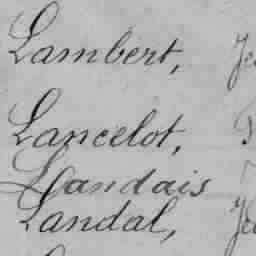 Lambert,
Lancelot,
Landais
Landal,